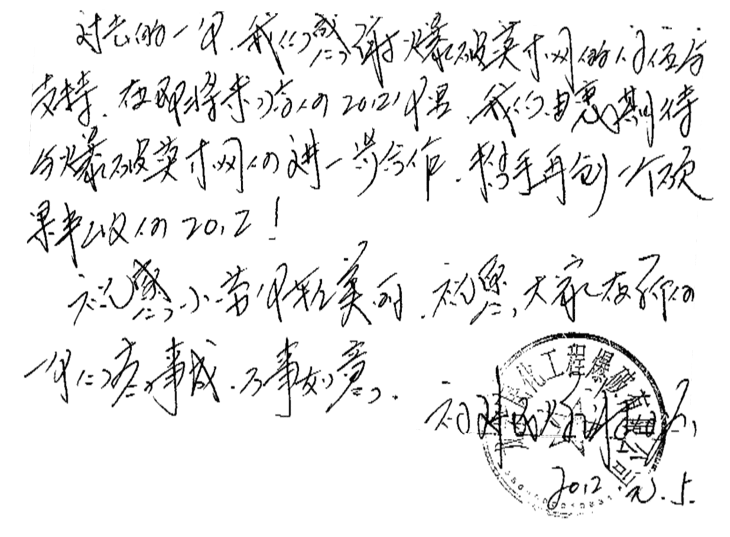 过去的一年,我们感谢爆破英才网的信任与
支持,在即将来临的2012年里,我们由衷期待
与爆破英才网的进一步合作,携手再创一个硕
果丰收的2012!
祝 小 年 美丽,祝愿大家在新的
一年心想事成,万事如意。
化工程爆破有限公司
2012.元.5.